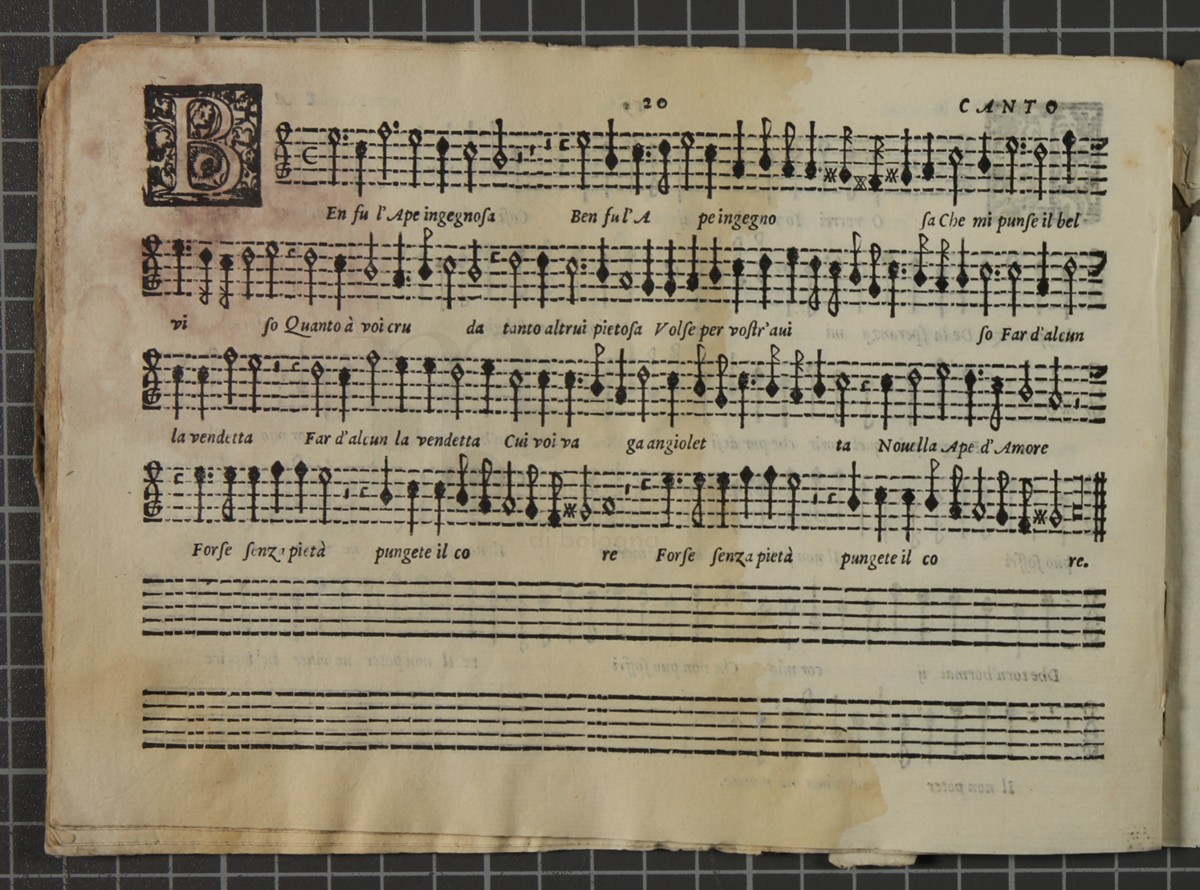 20 CANTO
BEn fu l'Ape ingegnosa Ben fu l'A pe ingegno sa Che mi punse il bel
vi so Quanto à voi cru da tanto altrui pietosa Volse per vostr'aui so Far d'alcun
la vendetta Far d'alcun la vendetta Cui voi va ga angiolet ta Nouella Ape d'Amore
Forse senza pietà pungete il co re Forse senza pietà pungete il co re.
di bologna